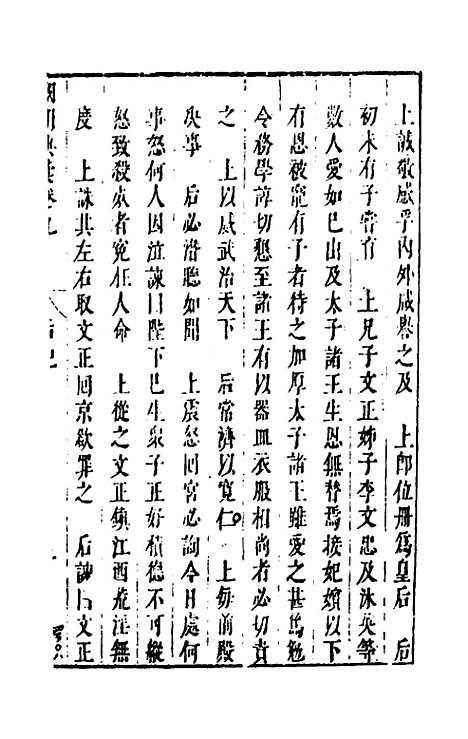 上誠敬感孚內外咸譽之及　上卽位冊爲皇后　后
初未有子嘗育　上兄子文正姊子李文忠及沐英等
數人愛如己出及太子諸王生恩無替焉接妃嬪以下
有恩被寵有子者待之加厚太子諸王雖愛之甚篤勉
令務學諄切懇至諸王有以器皿衣服相尚者必切責
之　上以威武治天下　后常濟以寬仁　上每前殿
决事　后必潛聽如聞　上震怒回宮必詢今日處何
事怒何人因泣諫曰陛下已生衆子正好積德不可縱
怒致殺來者冤枉人命　上從之文正鎮江西荒淫無
度　上誅其左右取文正回京欲罪之　后諫曰文正
卷九